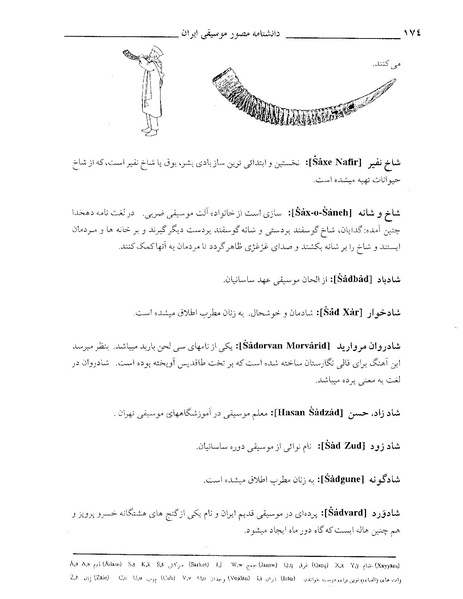 ۱۷٤ دانشنامه مصور موسیقی ایران
می کنند.
شاخ نفیر [Ŝâxe Nafir]: نخستین و ابتدائی ترین ساز بادی بشر، بوق یا شاخ نفیر است، که از شاخ
حیوانات تهیه میشده است.
شاخ و شانه [Ŝâx-o-Ŝâneh]: سازی است از خانواده آلت موسیقی ضربی. در لغت نامه دهخدا
چنین آمده: گدایان، شاخ گوسفند بردستی و شانه گوسفند بردست دیگر گیرند و بر خانه ها و مردمان
ایستند و شاخ را بر شانه بکشند و صدای غژغژی ظاهر گردد تا مردمان به آنها کمک کنند.
شادباد [Ŝâdbâd]: از الحان موسیقی عهد ساسانیان.
شادخوار [Ŝâd Xâr]: شادمان و خوشحال. به زنان مطرب اطلاق میشده است.
شادروان مروارید [Ŝâdorvan Morvârid]: یکی از نامهای سی لحن باربد میباشد. بنظر میرسد
این آهنگ برای قالی نگارستان ساخته شده است که بر تخت طاقدیس آویخته بوده است. شادروان در
لغت به معنی پرده میباشد.
شاد زاد، حسن [Hasan Ŝâdzâd]: معلم موسیقی در آموزشگاههای موسیقی تهران.
شاد زود [Ŝâd Zud]: نام نوائی از موسیقی دوره ساسانیان.
شادگونه [Ŝâdgune]: به زنان مطرب اطلاق میشده است.
شادوَرد [Ŝâdvard]: پرده‌ای در موسیقی قدیم ایران و نام یکی از گنج های هشتگانه خسرو پرویز و
هم چنین هاله ایست که گاه دور ماه ایجاد میشود.